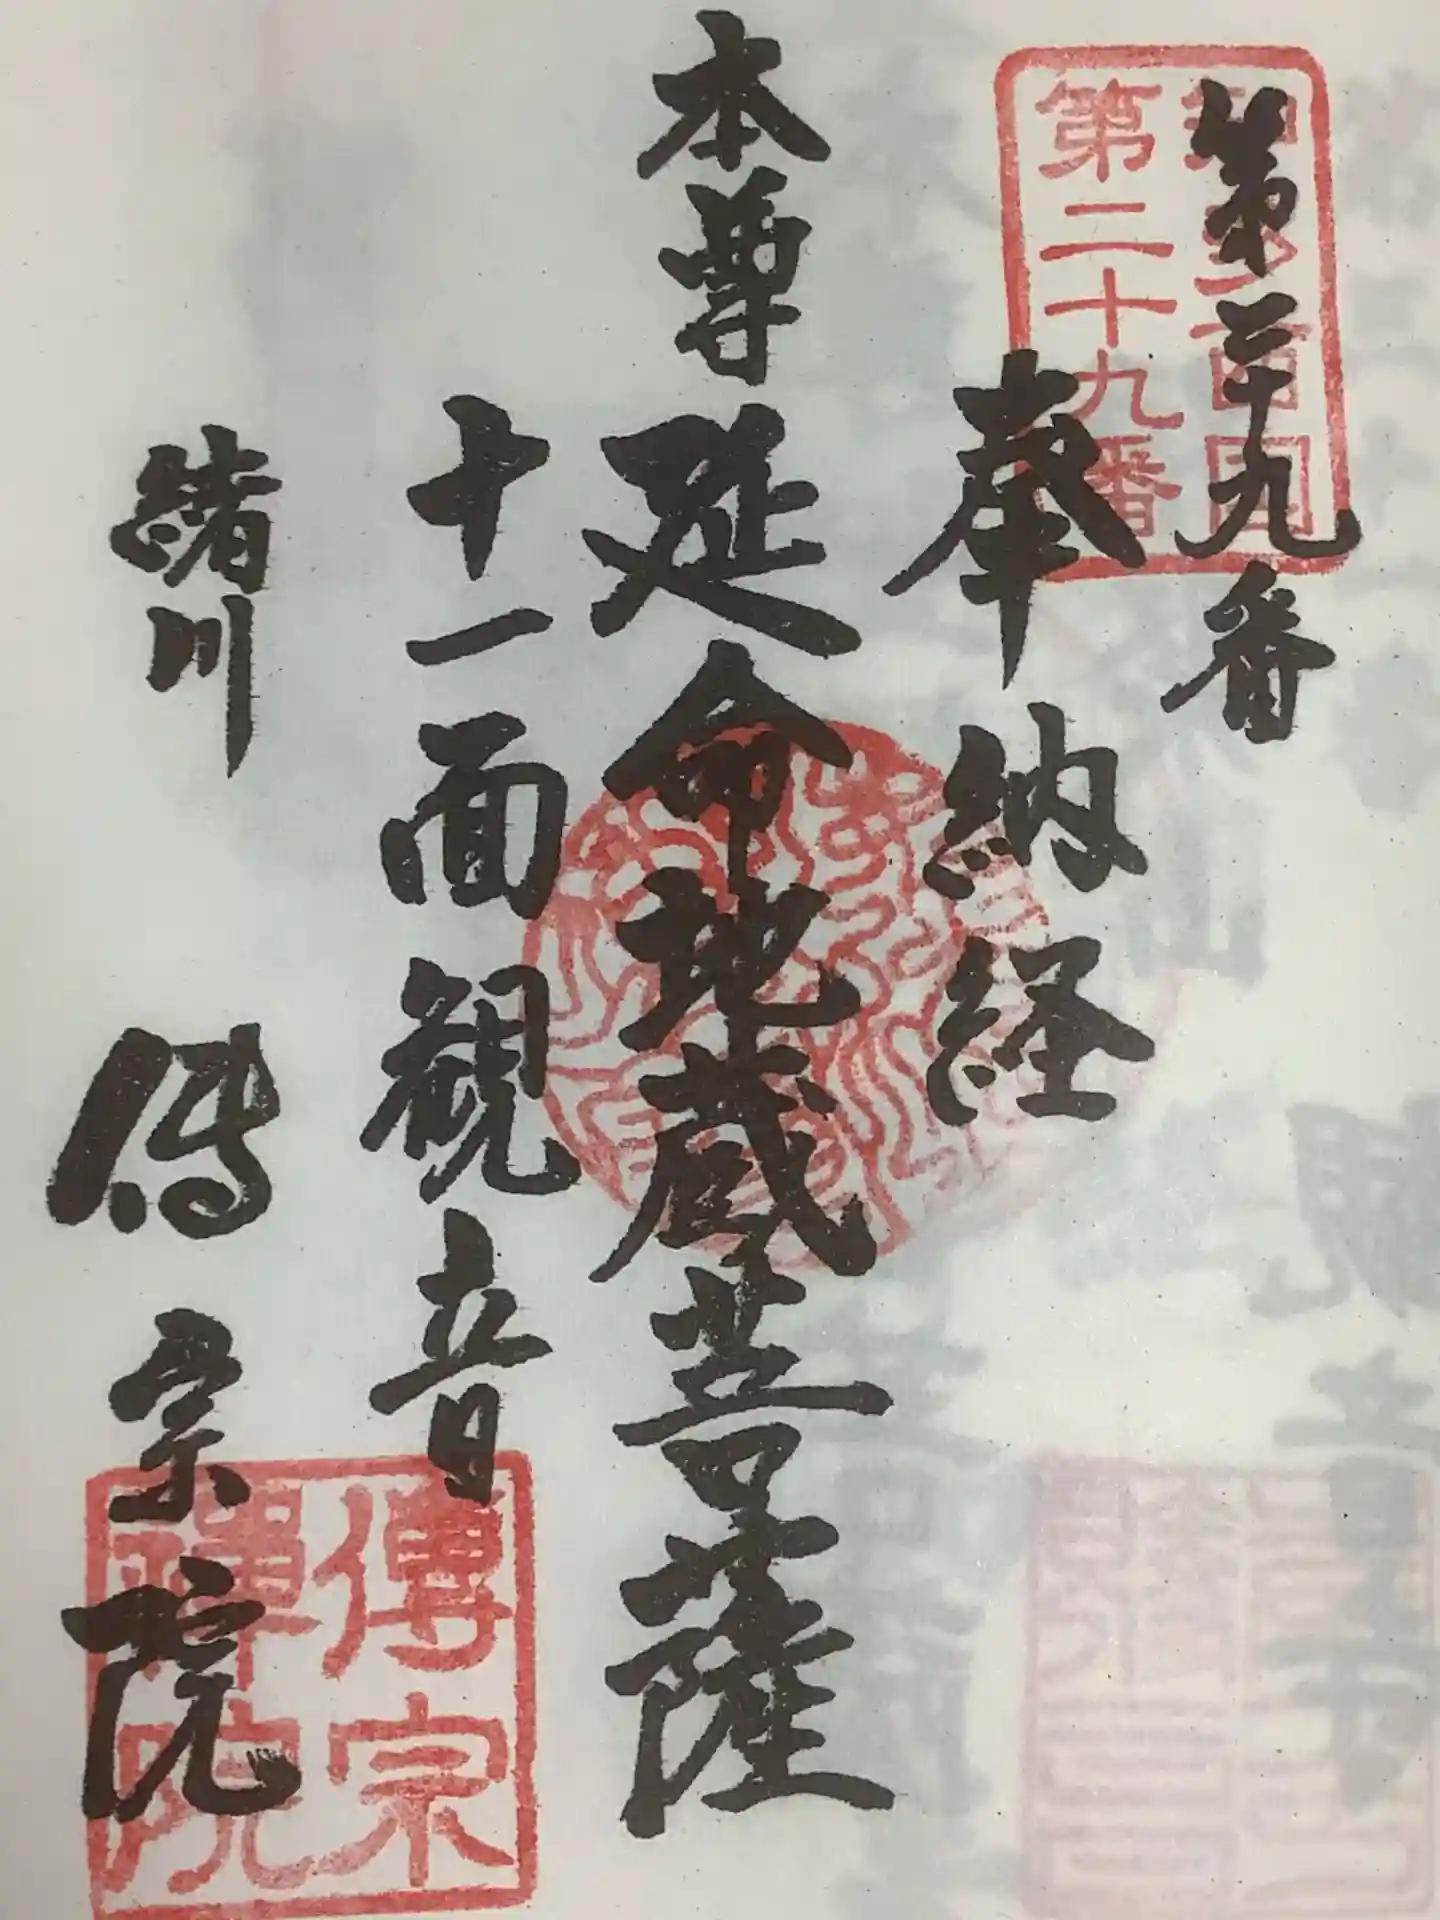 第二十九番
知多西国
第二十九番
奉納経
本尊延命地蔵菩薩
十一面観音
緒川
傳宗院
傳宗
禅院